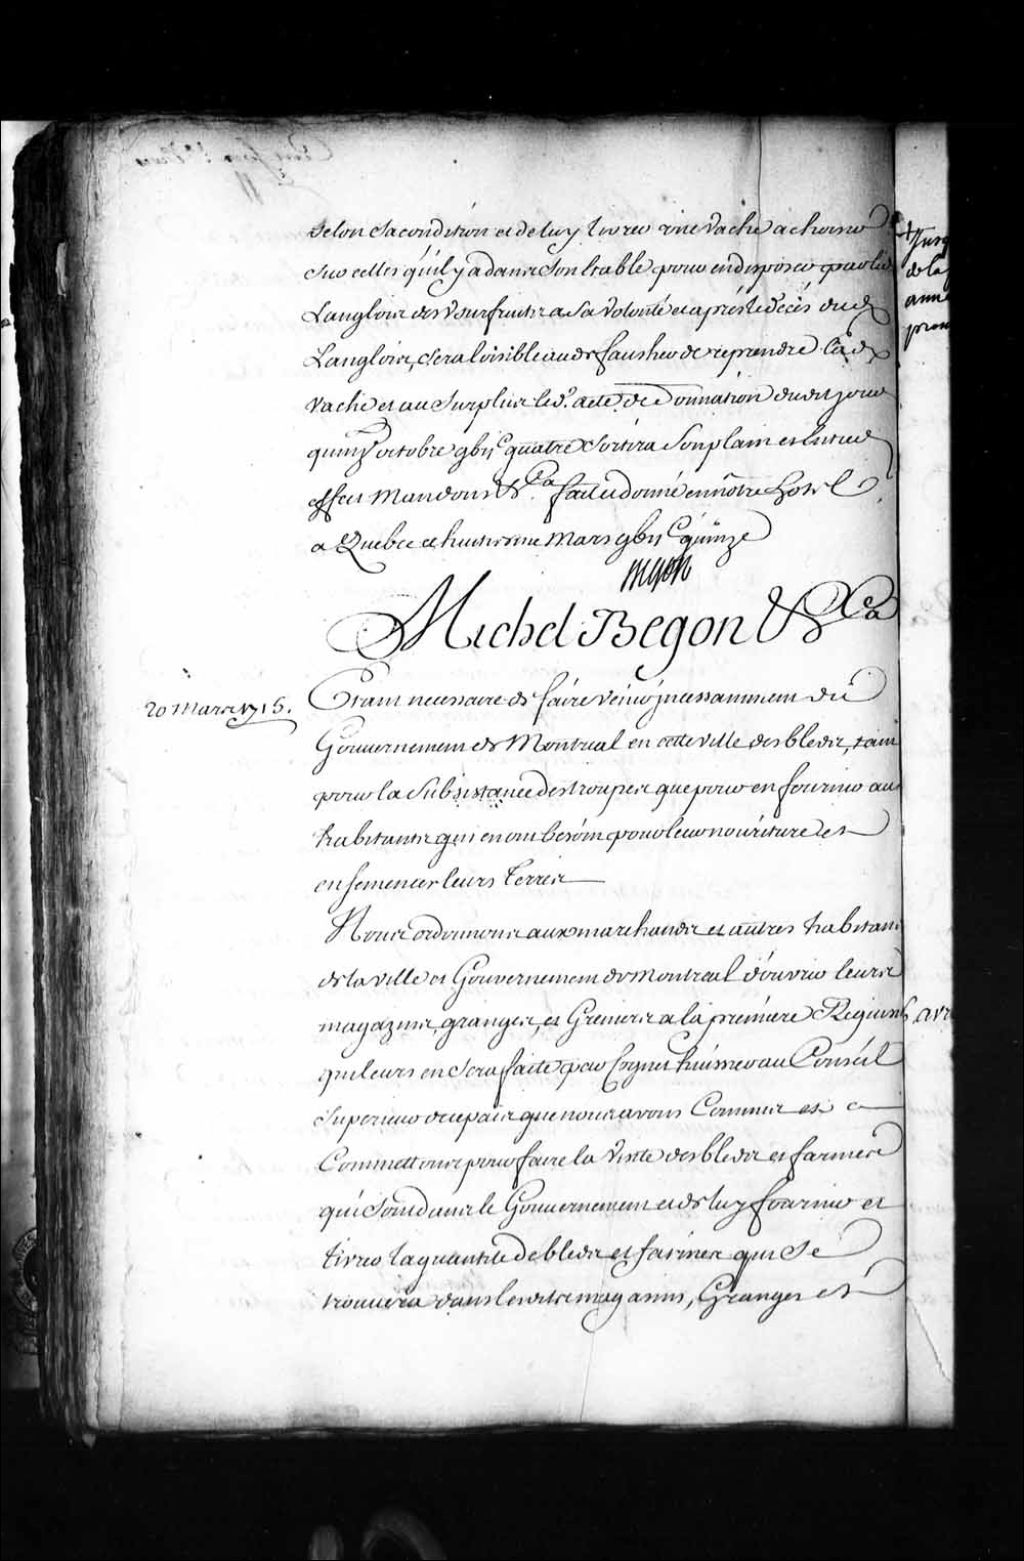 selon sa condition et de luy livrer une vache a choisir
sur celles qu'il y a dans son étable pour en disposer par led
Langlois des usufruits a sa volonté et aprés le décés dud
Langlois, sera loisible aud faucher de reprendre lad
vache et au surplus led. acte de Donnation dudit jour
quinze octobre gbij C quatre sortira son plain et entier
effet Mandons &.ca fait et donné en nôtre hotel
a Quebec ce huitieme Mars gbij C quinze
Begon
Michel Begon &ca
20 Mars 1715.
Etant necessaire de faire venir jncessamment du
Gouvernement de Montreal en cette ville des bleds, tant
pour la Subsistance des troupes que pour en fournir aux
habitants qui en ont besoin pour leur nouriture et
ensemencer leurs terres
Nous ordonnons aux marchands et autres habitans
de la ville et Gouvernement de Montreal d'ouvrir leurs
magazins, granges, et Greniers a la premiere Requis
qui leurs en sera faite par huissier au Conseil
Superieur de ce pais que nous avons Commis et
Commettons pour faire la visite des bleds et farines
qui sont dans le Gouvernement et de luy fournir et
livrer la quantité de bleds et farines qui se
trouvera dans lesdits magasins, Granges et
de la